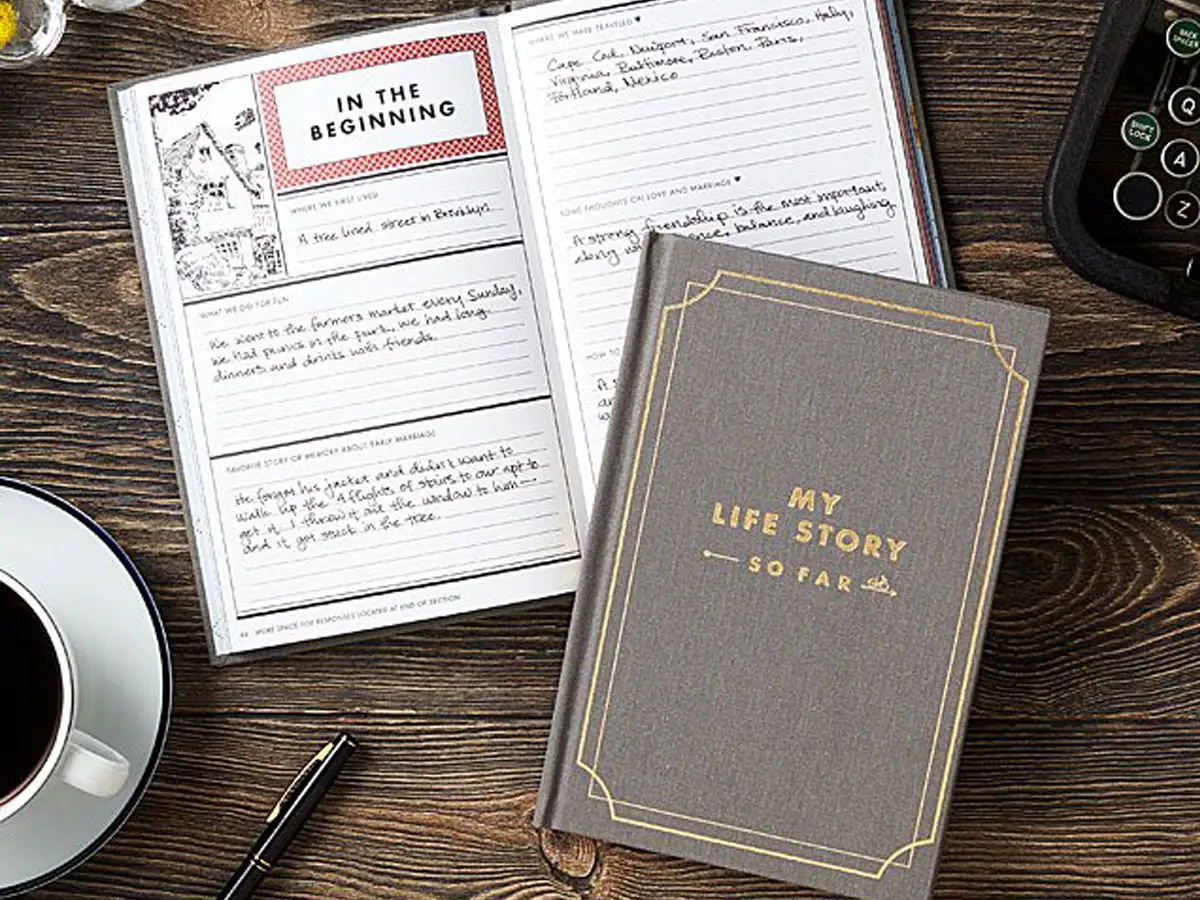 IN THE
BEGINNING
WHERE WE FIRST LIVED
A tree lined street in Brooklyn!
WHAT WE DID FOR FUN
We went to the farmers market every Sunday,
we had picnics in the park, we had long
dinners and drinks with friends.
FAVORITE STORY OR MEMORY ABOUT EARLY MARRIAGE
He forgot his jacket and didn't want to
walk up the 4 flights of stairs to our apt to
get it. I threw it out the window to him —
and it got stuck in the tree.
MORE SPACE FOR RESPONSES LOCATED AT END OF SECTION
WHERE WE HAVE TRAVELED ♥
Cape Cod, Newport, San Francisco, Italy,
Virginia, Baltimore, Boston, Paris,
Portland, Mexico
SOME THOUGHTS ON LOVE AND MARRIAGE ♥
A strong friendship is the most important
along balance, and laughing
HOW TO
A
MY
LIFE STORY
SO FAR
BACK
SPACE
Q
SHIFT
LOCK
A
Z